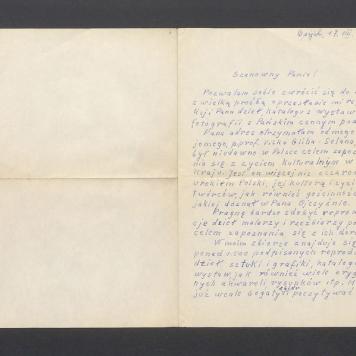 17. VIII
Szanowny Panie!
Pozwalam sobie zwrócić się do
z wielką prośbą o przesłanie mi re
kcji Pana dzieł, katalogu z wystaw
fotografii z Pańskim cennym po
Pana adres otrzymałam od mego
jomego, p. prof.
był niedawno w Polsce celem zapoz
nia się z życiem kulturalnym w
kraju. Jest on więcej niż oczaro
urokiem Polski, jej kulturą i życi
twórców, jak również gościnnoś
jakiej doznał w Pana Ojczyźnie.
Pragnę bardzo zdobyć repro
cje dzieł malarzy i rzeźbiarzy po
celem zapoznania się z ich dor
W moim zbiorze znajduje się
ponad podpisanych reprodu
dzieł sztuki i grafiki, katalog
wystaw, jak również wiele oryg
nych akwareli rysunków itp. M
już wcale bogaty poczytywać